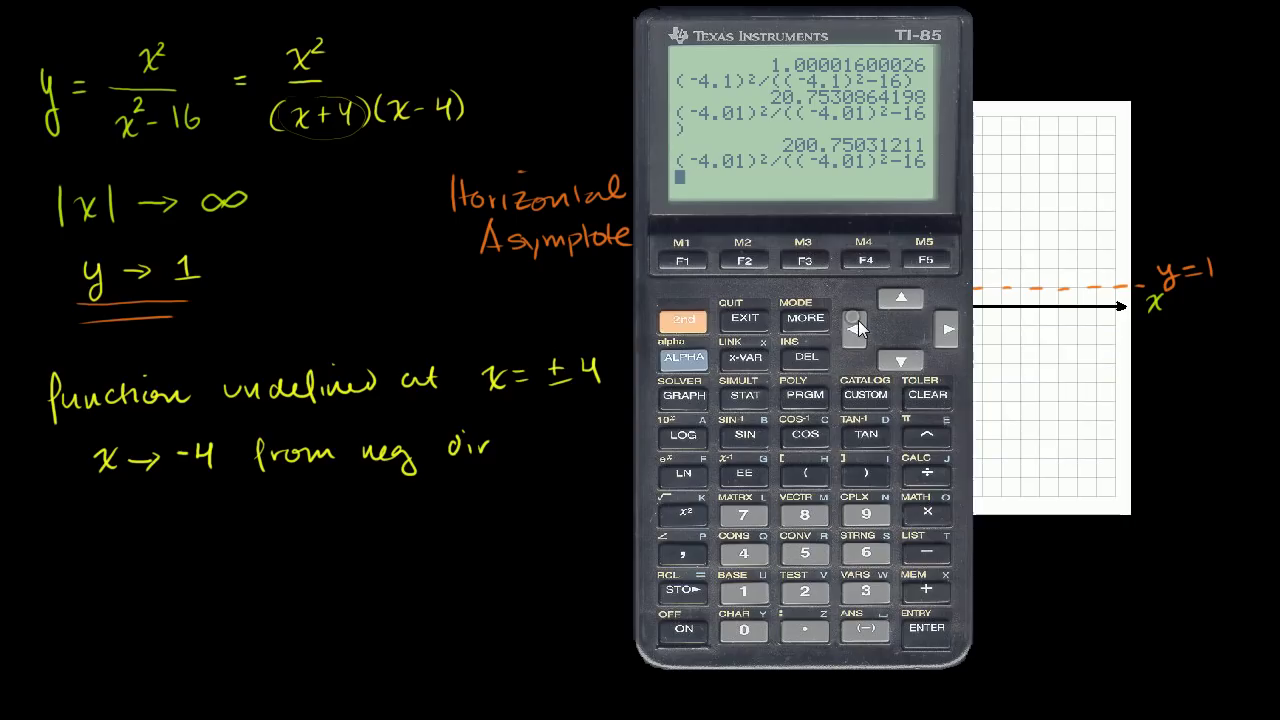 y = x²/(x²-16) = x²/((x+4)(x-4))
|x| → ∞
y → 1
Horizontal
Asymptote
function undefined at x = ±4
x → -4 from neg dir
TEXAS INSTRUMENTS TI-85
1.00001600026
(-4.1)²/((-4.1)²-16)
20.7530864198
(-4.01)²/((-4.01)²-16
)
200.75031211
(-4.01)²/((-4.01)²-16
M1 M2 M3 M4 M5
F1 F2 F3 F4 F5
QUIT MODE
2nd EXIT MORE
alpha LINK x INS
ALPHA x-VAR DEL
SOLVER SIMULT POLY CATALOG TOLER
GRAPH STAT PRGM CUSTOM CLEAR
10ˣ A SIN⁻¹ B COS⁻¹ C TAN⁻¹ D π E
LOG SIN COS TAN ^
eˣ F x⁻¹ G [ H ] I CALC J
LN EE ( ) ÷
√ K MATRX L VECTR M CPLX N MATH O
x² 7 8 9 ×
∠ P CONS Q CONV R STRNG S LIST T
, 4 5 6 −
RCL = BASE U TEST V VARS W MEM X
STO▶ 1 2 3 +
OFF CHAR Y : Z ANS ENTRY
ON 0 . (−) ENTER
y = 1
x